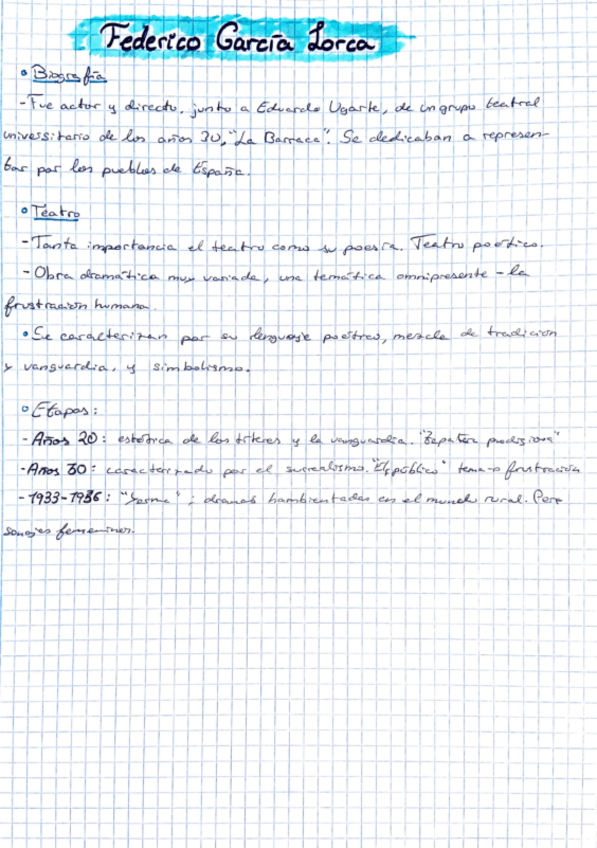 Federico García Lorca
Biografía
- Fue actor y director, junto a Eduardo Ugarte, de un grupo teatral
universitario de los años 30, "La Barraca". Se dedicaban a represen-
tar por los pueblos de España.
Teatro
- Tanta importancia el teatro como su poesía. Teatro poético.
- Obra dramática muy variada, una temática omnipresente - la
frustración humana.
• Se caracterizan por su lenguaje poético, mezcla de tradición
y vanguardia, y simbolismo.
Etapas:
- Años 20: estética de los títeres y la vanguardia. "Zapatera prodigiosa"
- Años 30: caracterizado por el surrealismo. "El público" tema → frustración
- 1933-1936: "Yerma"; dramas hambientadas en el mundo rural. Per
sonajes femeninos.